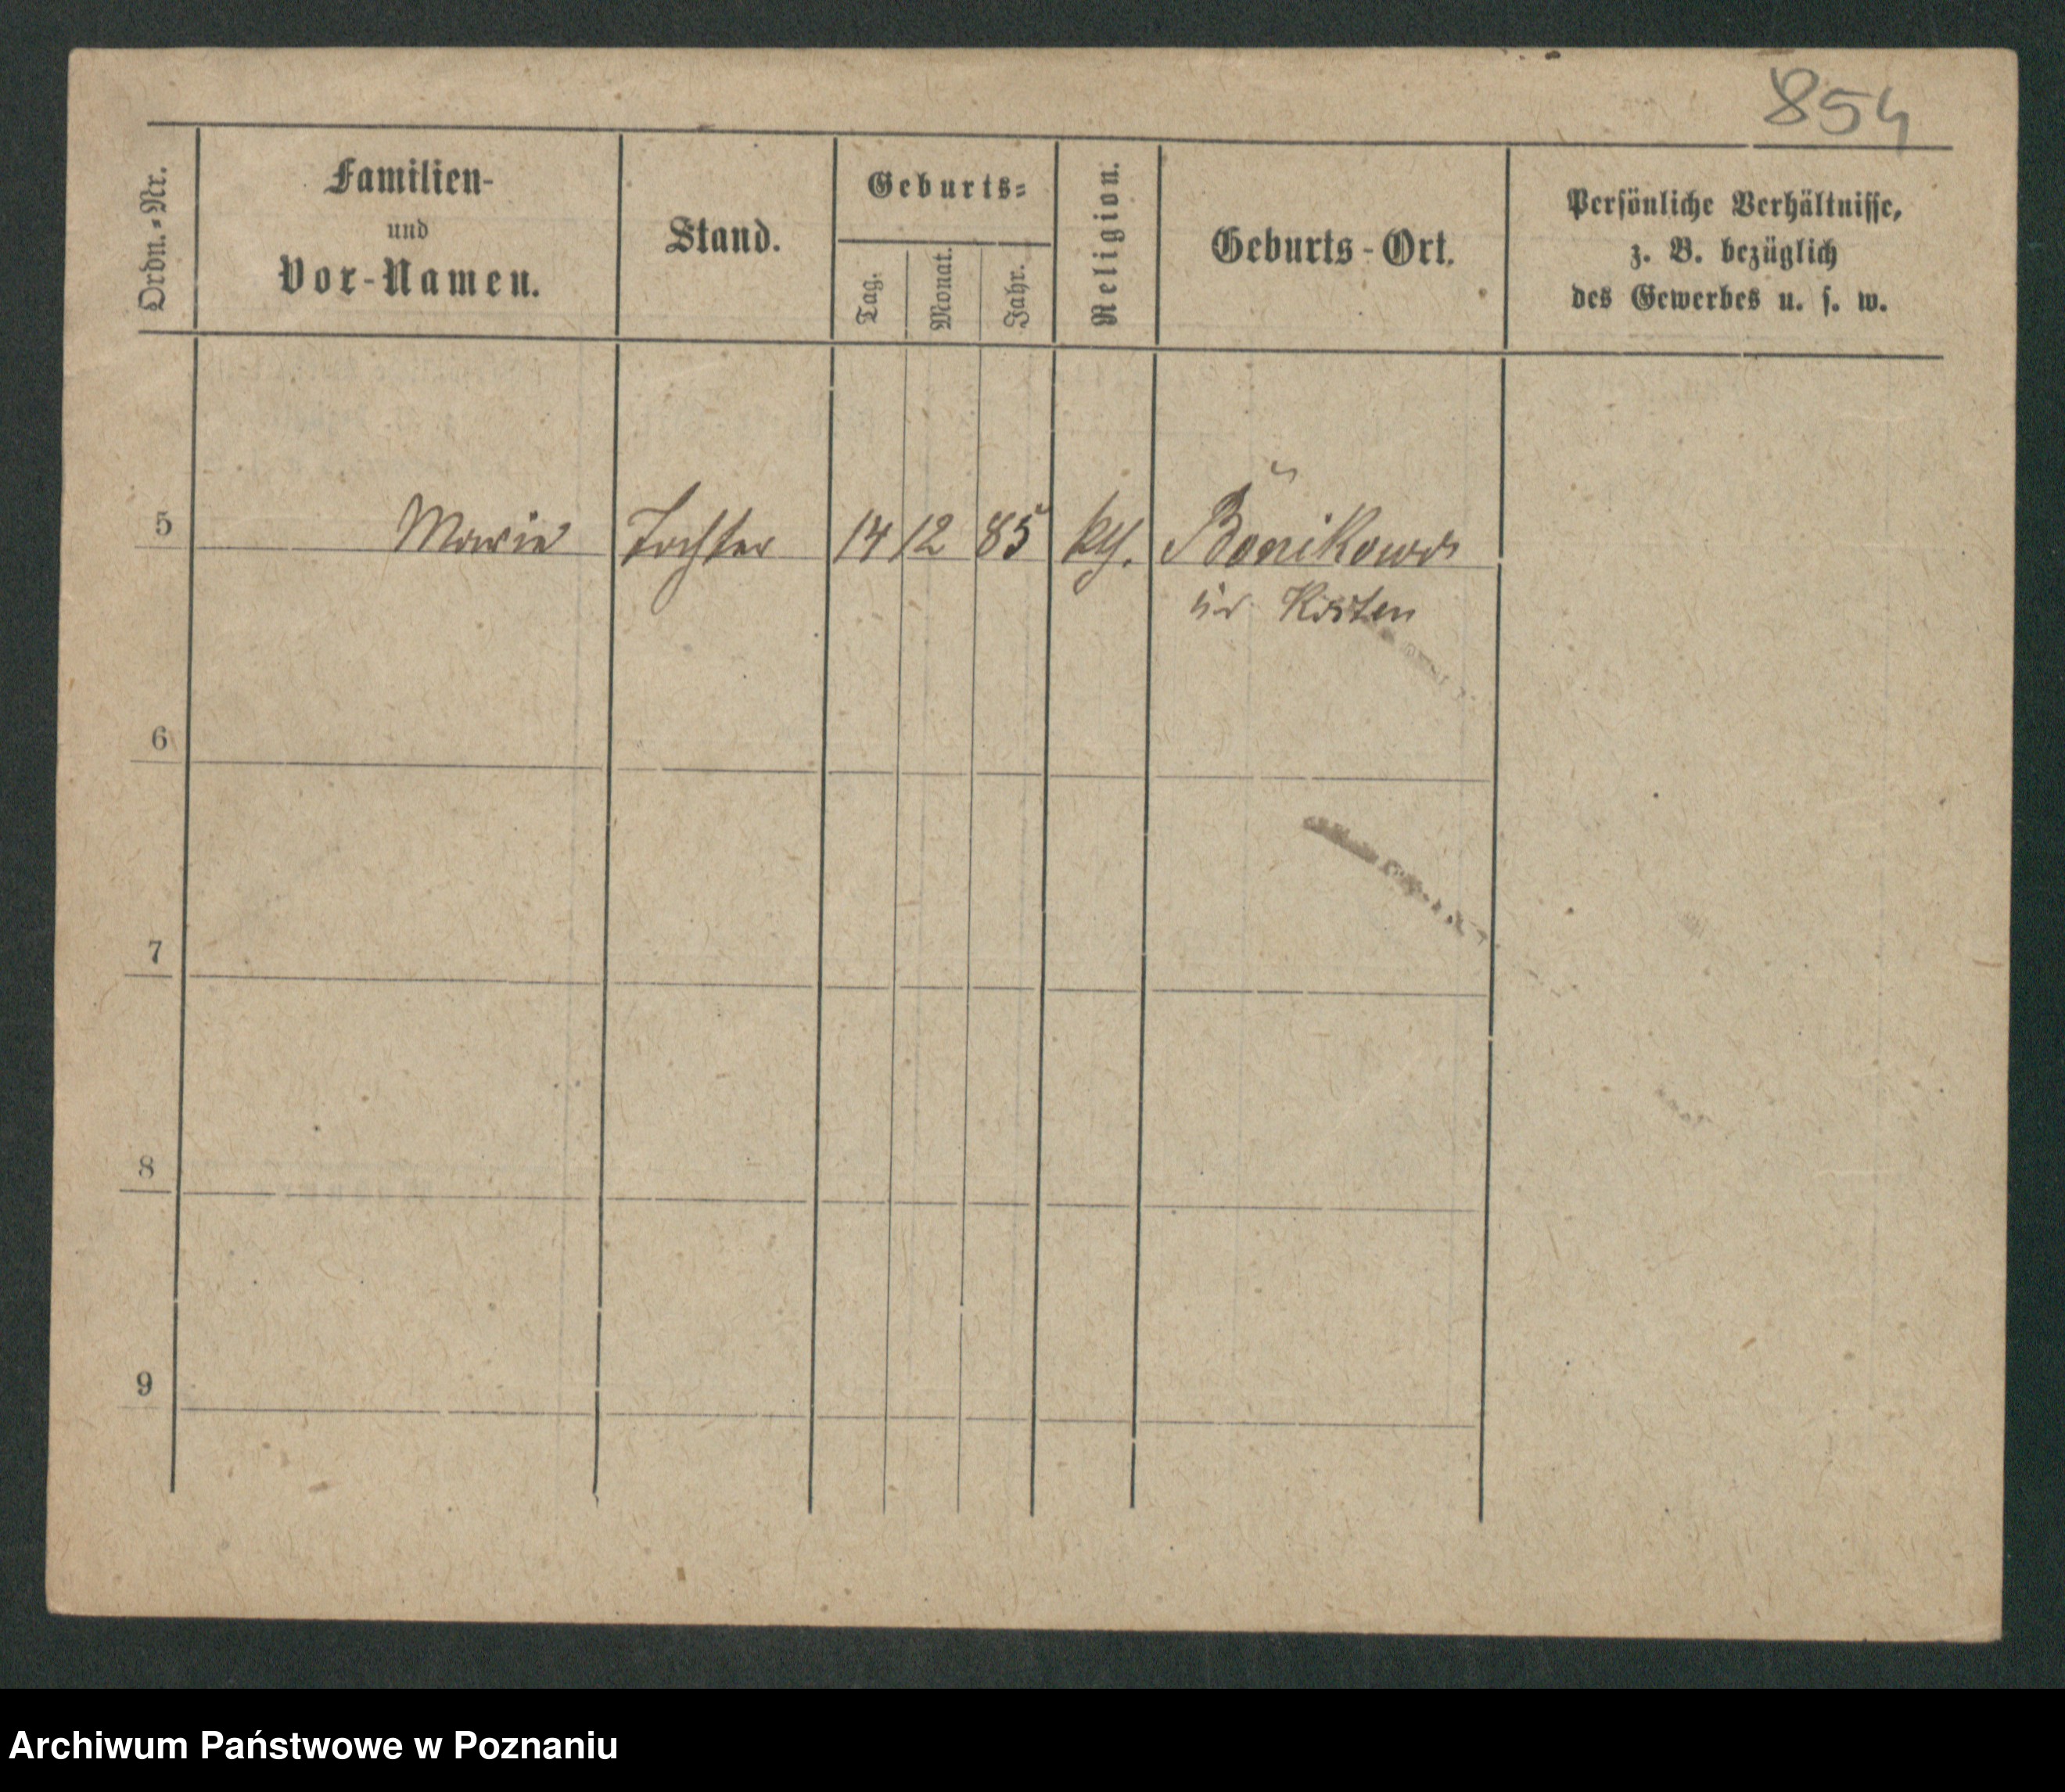 854
Ordn.-Nr.
Familien-
und
Vor-Namen.
Stand.
Geburts-
Tag.
Monat.
Jahr.
Religion.
Geburts-Ort.
Persönliche Verhältnisse,
z. B. bezüglich
des Gewerbes u. s. w.
5 Marie Tochter 14 12 85 kth. Bonikowo
Kr Kosten
6
7
8
9
Archiwum Państwowe w Poznaniu